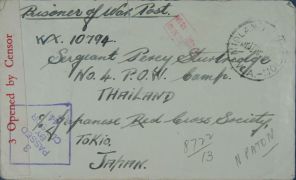 Prisoner of War Post.
WX. 10794.
Sergeant Percy
No. 4. P.O.W. Camp.
THAILAND
Japanese Red Cross Society,
Tokio,
JAPAN.
3 Opened by Censor
PASSED
BY
8722
13
N PATON